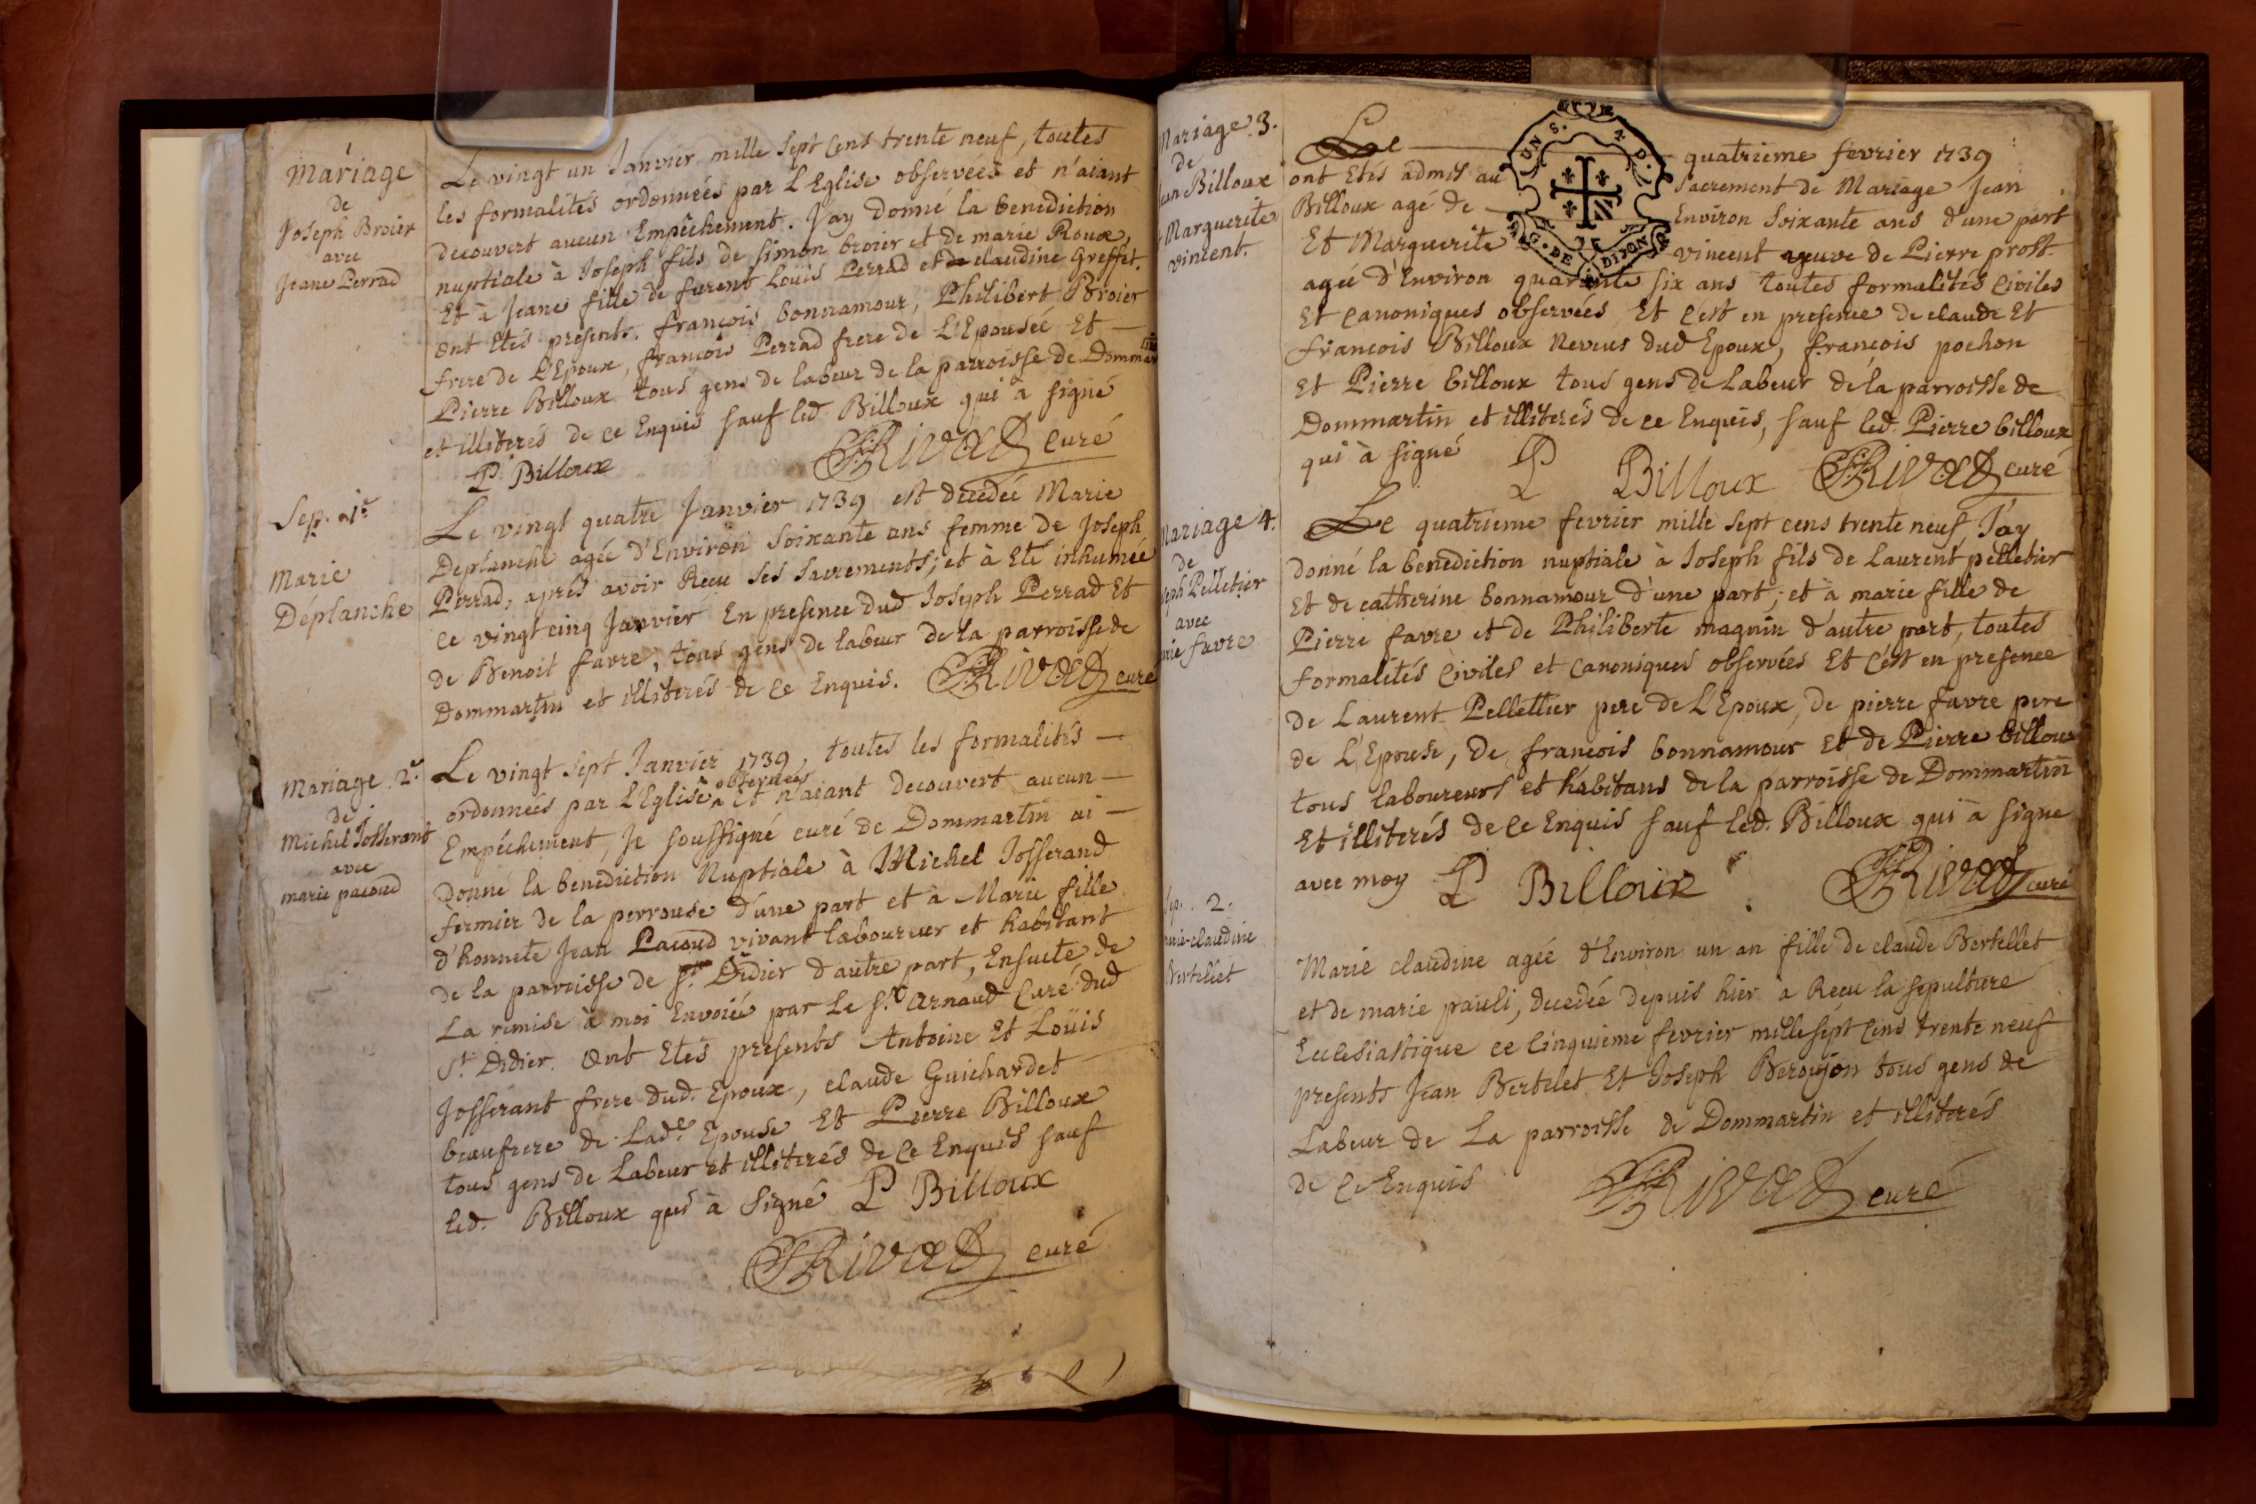 Mariage
de
Joseph Broier
avec
Jeane Perrad
Le vingt un Janvier mille sept cens trente neuf, toutes
les formalités ordonneés par L'Eglise observeés et n'aiant
decouvert aucun Empêchement. J'ay donné la benediction
nuptiale à Joseph fils de simon broier et de marie Roux,
Et à Jeane fille de furent Loüis Perrad et de claudine Greffet.
ont Etés presents. françois bonnamour, Philibert Broier
frere de L'Epoux, françois Perrad frere de L'Epouseé Et —
Pierre Billoux tous gens de labeur de la parroisse de Dommartin
et illiterés de ce Enquis sauf led. Billoux qui à signé
P. Billoux Rivad curé
Sep. 1re
Marie
Déplanche
Le vingt quatre Janvier 1739 est decedeé Marie
Deplanche ageé d'Environ soixante ans femme de Joseph
Perrad, aprés avoir Recu ses sacrements; et à Eté inhumée
ce vingt cinq Janvier En presence dud Joseph Perrad Et
de Benoit favre, tous gens de labeur de la parroisse de
Dommartin et illiterés de ce Enquis. Rivad curé
Mariage 2e.
de
Michel Josserant
avec
marie pacoud
Le vingt sept Janvier 1739, toutes les formalités —
ordonneés par L'Eglise observeés et n'aiant decouvert aucun —
Empêchement, Je soussigné curé de Dommartin ai —
Donné la benediction Nuptiale à Michel Josserand
fermier de la perrouse d'une part et à Marie fille
d'honnete Jean Pacoud vivant laboureur et habitant
de la parroisse de St. Didier d'autre part, Ensuite de
La remise à moi Envoieé par Le Sr. Arnaud Curé dud
St. Didier. Ont Etés presents Antoine Et Loüis
Josserant frere dud. Epoux, claude Guichardet —
beaufrere de Lade. Epouse Et Pierre Billoux
tous gens de Labeur et illiterés de ce Enquis sauf
led. Billoux qui à signé P Billoux
Rivad curé
Mariage 3.
de
Jean Billoux
Marguerite
vincent.
Le — quatrieme fevrier 1739
ont Etés admis au Sacrement de Mariage Jean
Billoux agé de — Environ soixante ans d'une part
Et Marguerite vincent veuve de Pierre prost
ageé d'Environ quarante six ans toutes formalités Civiles
Et Canoniques observeés Et c'est en presence de claude Et
François Billoux Neveus dud Epoux, françois pochon
et Pierre billoux tous gens de Labeur de la parroisse de
Dommartin et illiterés de ce Enquis, sauf led. Pierre billoux
qui à signé P Billoux Rivad curé
UNS. 4. D.
G. DE DIJON
Mariage 4.
de
Joseph Pelletier
avec
marie favre
Le quatrieme fevrier mille sept cens trente neuf J'ay
donné la benediction nuptiale à Joseph fils de Laurent pelletier
Et de catherine bonnamour d'une part; et à marie fille de
Pierre favre et de Philiberte magnin d'autre part, toutes
formalités Civiles et Canoniques observeés Et c'est en presence
de Laurent Pellettier pere de L'Epoux, de pierre favre pere
de L'Epouse, de francois bonnamour Et de Pierre billoux
tous laboureurs et habitans de la parroisse de Dommartin
Et illiterés de ce Enquis sauf led. Billoux qui à signe
avec moy P Billoux Rivad curé
Sep. 2.
marie-claudine
Bertellet
Marie claudine ageé d'Environ un an fille de claude Bertellet
et de marie pauli, decedeé depuis hier à Recu la sepulture
Ecclesiastique ce Cinquieme fevrier mille sept Cens trente neuf
presents Jean Bertelet Et Joseph Beroujon tous gens de
Labeur de La parroisse de Dommartin et illiterés
de ce Enquis Rivad curé